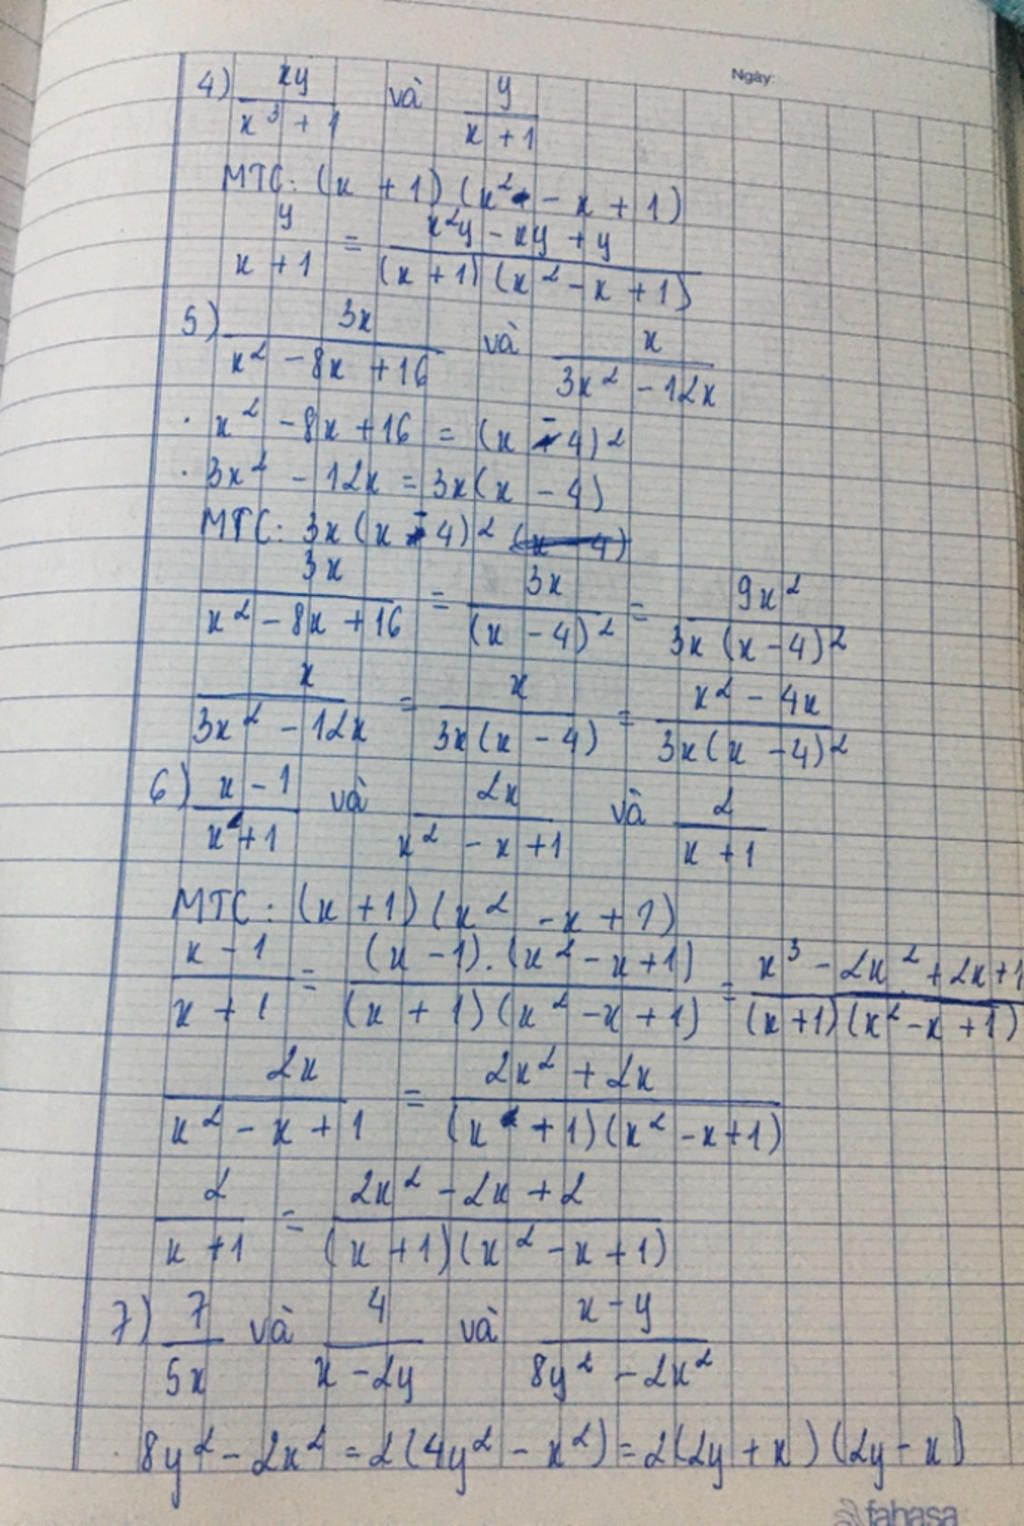 Ngày:
4) xy/(x³ + 1) và y/(x + 1)
MTC: (x + 1) (x² - x + 1)
y/(x + 1) = (x²y - xy + y)/((x + 1) (x² - x + 1))
5) 3x/(x² - 8x + 16) và x/(3x² - 12x)
. x² - 8x + 16 = (x - 4)²
. 3x² - 12x = 3x(x - 4)
MTC: 3x(x - 4)²
3x/(x² - 8x + 16) = 3x/(x - 4)² = 9x²/(3x (x - 4)²)
x/(3x² - 12x) = x/(3x(x - 4)) = (x² - 4x)/(3x(x - 4)²)
6) (x - 1)/(x + 1) và 2x/(x² - x + 1) và 2/(x + 1)
MTC: (x + 1) (x² - x + 1)
(x - 1)/(x + 1) = ((x - 1).(x² - x + 1))/((x + 1) (x² - x + 1)) = (x³ - 2x² + 2x + 1)/((x + 1) (x² - x + 1))
2x/(x² - x + 1) = (2x² + 2x)/((x + 1)(x² - x + 1))
2/(x + 1) = (2x² - 2x + 2)/((x + 1)(x² - x + 1))
7) 7/5x và 4/(x - 2y) và (x - y)/(8y² - 2x²)
. 8y² - 2x² = 2(4y² - x²) = 2(2y + x) (2y - x)
fahasa